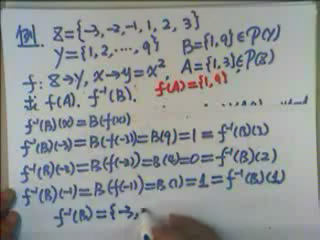 例. X={-3,-2,-1,1,2,3}
Y={1,2,…,9} B={1,9}∈P(Y)
f:X→Y, x→y=x², A={1,3}∈P(X)
求 f(A). f⁻¹(B). f(A)={1,9}
f⁻¹(B)(x)=B(f(x))
f⁻¹(B)(-3)=B(f(-3))=B(9)=1=f⁻¹(B)(3)
f⁻¹(B)(-2)=B(f(-2))=B(4)=0=f⁻¹(B)(2)
f⁻¹(B)(-1)=B(f(-1))=B(1)=1=f⁻¹(B)(1)
f⁻¹(B)={-3,